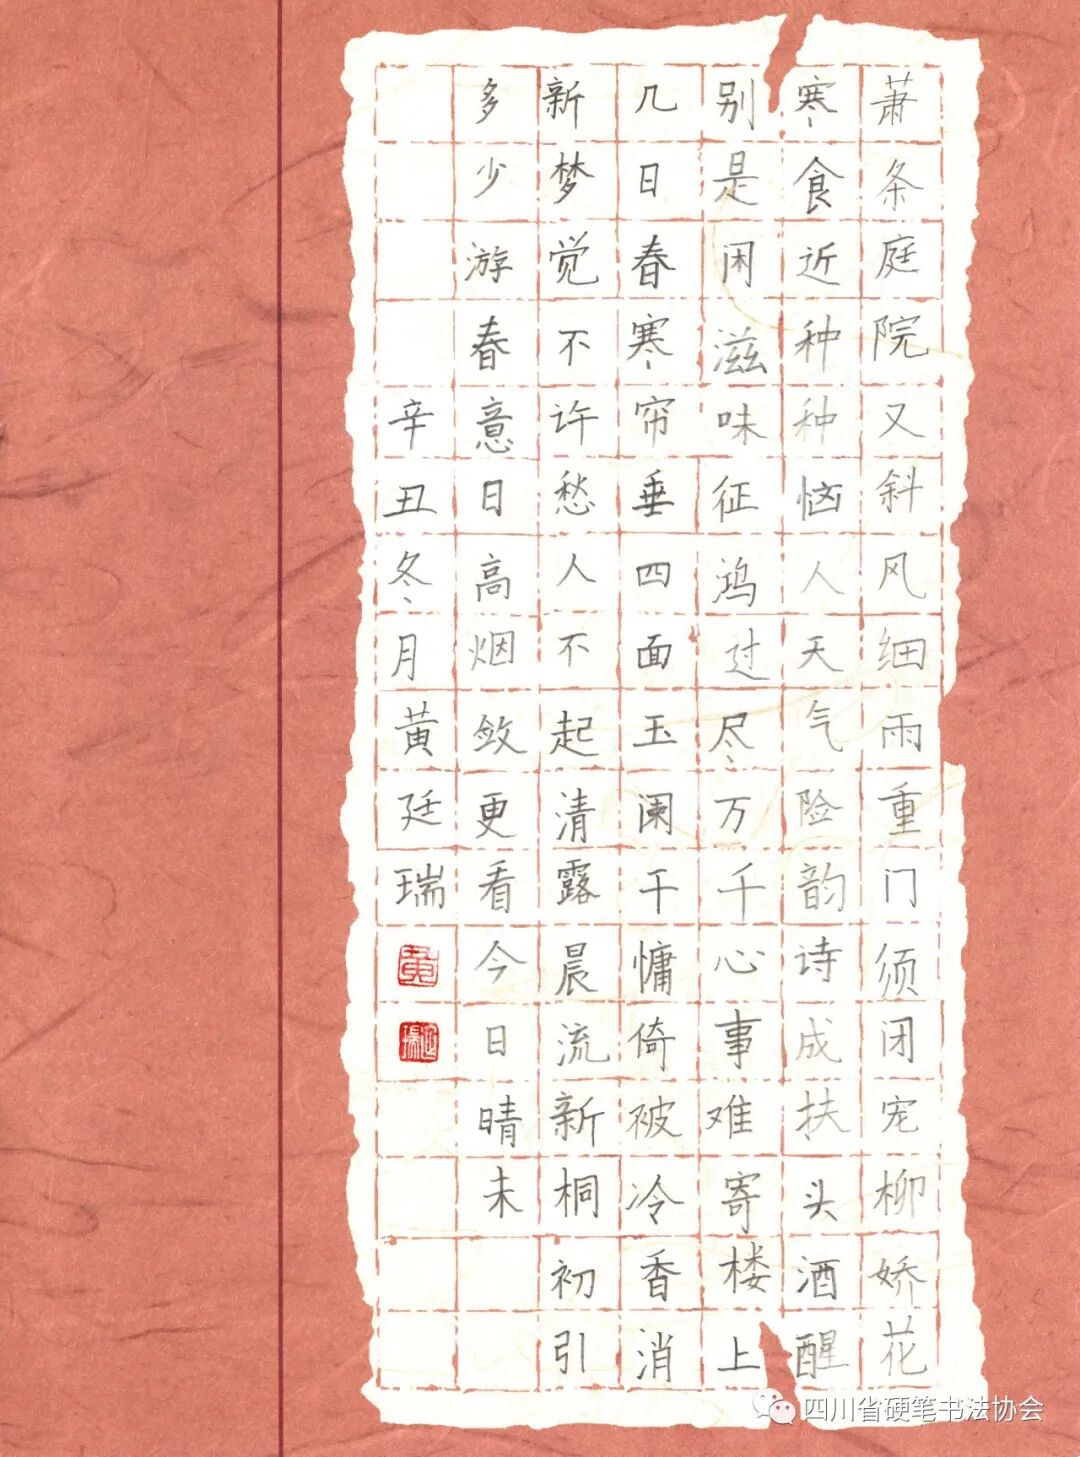 萧条庭院又斜风细雨重门须闭宠柳娇花
寒食近种种恼人天气险韵诗成扶头酒醒
别是闲滋味征鸿过尽万千心事难寄楼上
几日春寒帘垂四面玉阑干慵倚被冷香消
新梦觉不许愁人不起清露晨流新桐初引
多少游春意日高烟敛更看今日晴未
辛丑冬月黄廷瑞
黄
廷瑞
四川省硬笔书法协会